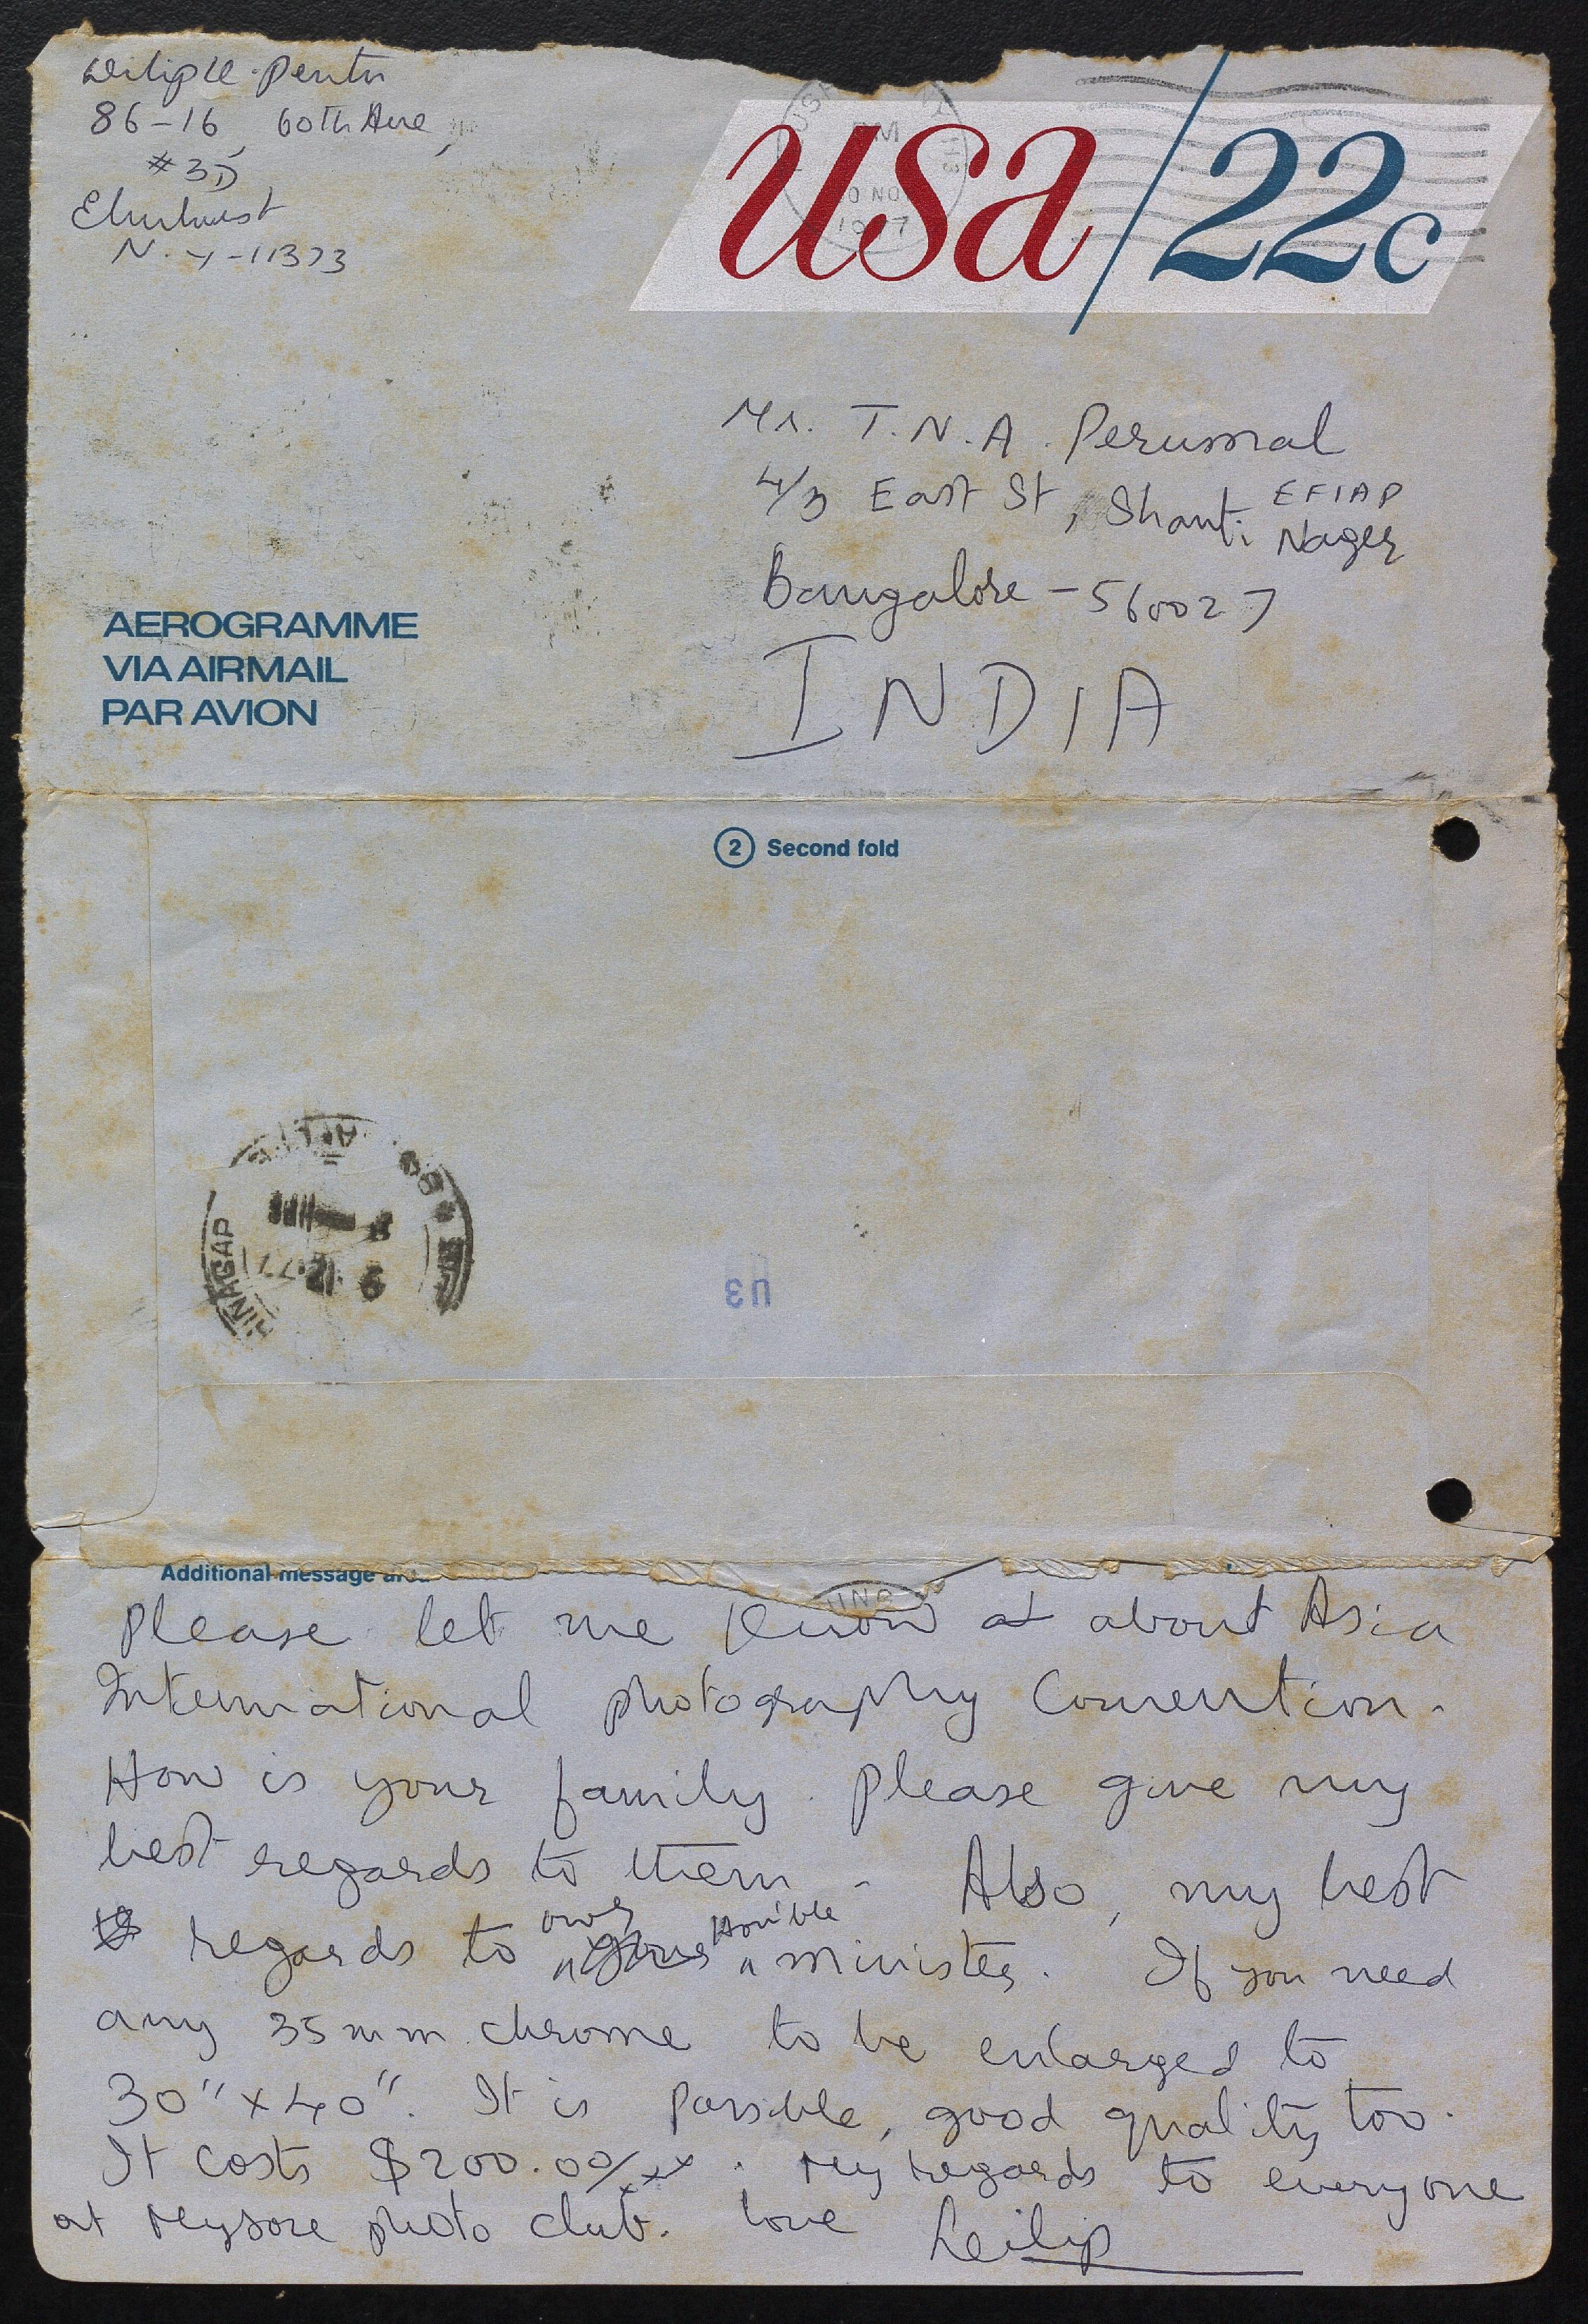 86-16, 60th Ave,
#3D
Elmhurst
N.Y-11373
usa/22c
PM
NO
Mr. T.N.A. Perumal
EFIAP
4/3 East St, Shanti Nager
Bangalore - 560027
INDIA
AEROGRAMME
VIA AIRMAIL
PAR AVION
2 Second fold
U3
Additional message
Please let me know at about Asia
International photography Convention.
How is your family. Please give my
best regards to them. Also, my best
regards to our Hon'ble minister. If you need
any 35mm chrome to be enlarged to
30" x 40". It is possible, good quality too.
It costs $200.00/xx. My regards to everyone
at Mysore photo club. love Leilip